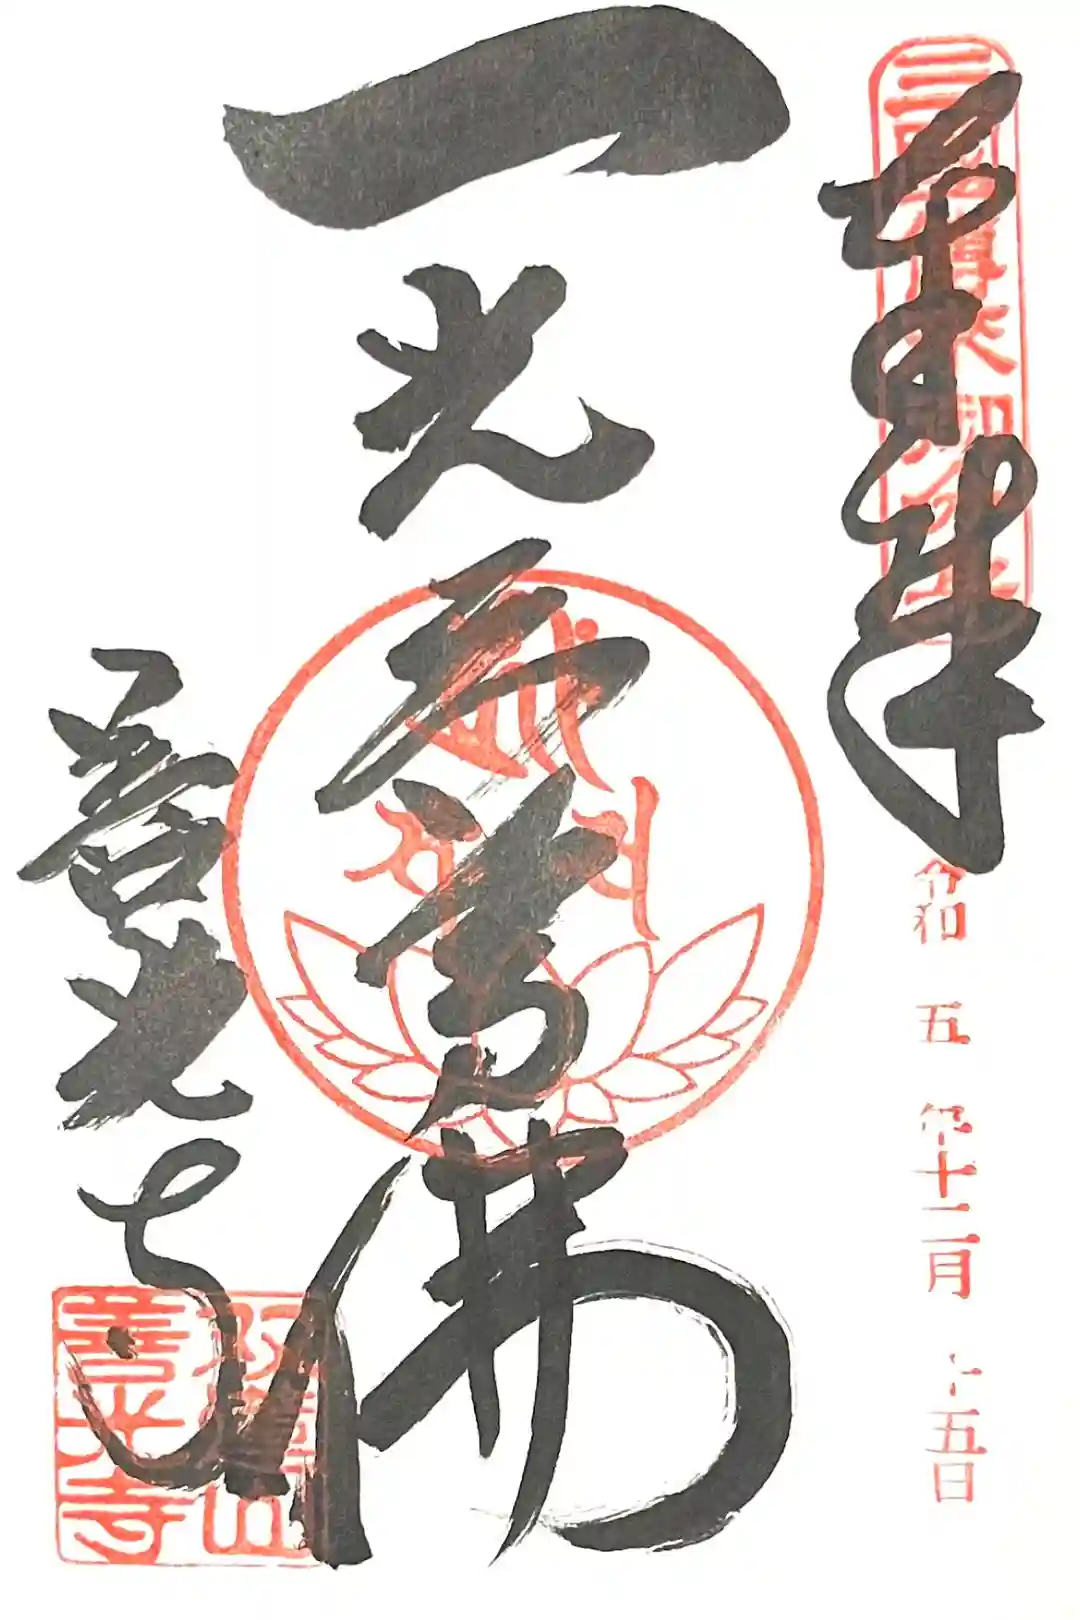 奉拝
三國傳来
令和五年十二月十五日
一光三尊佛
善光寺
善光寺